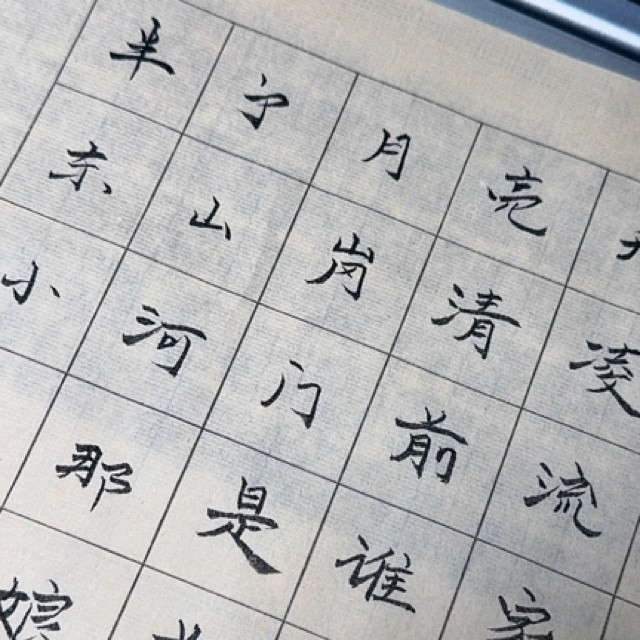 半月亮
东山岗清凌
小河门前流
那是谁家